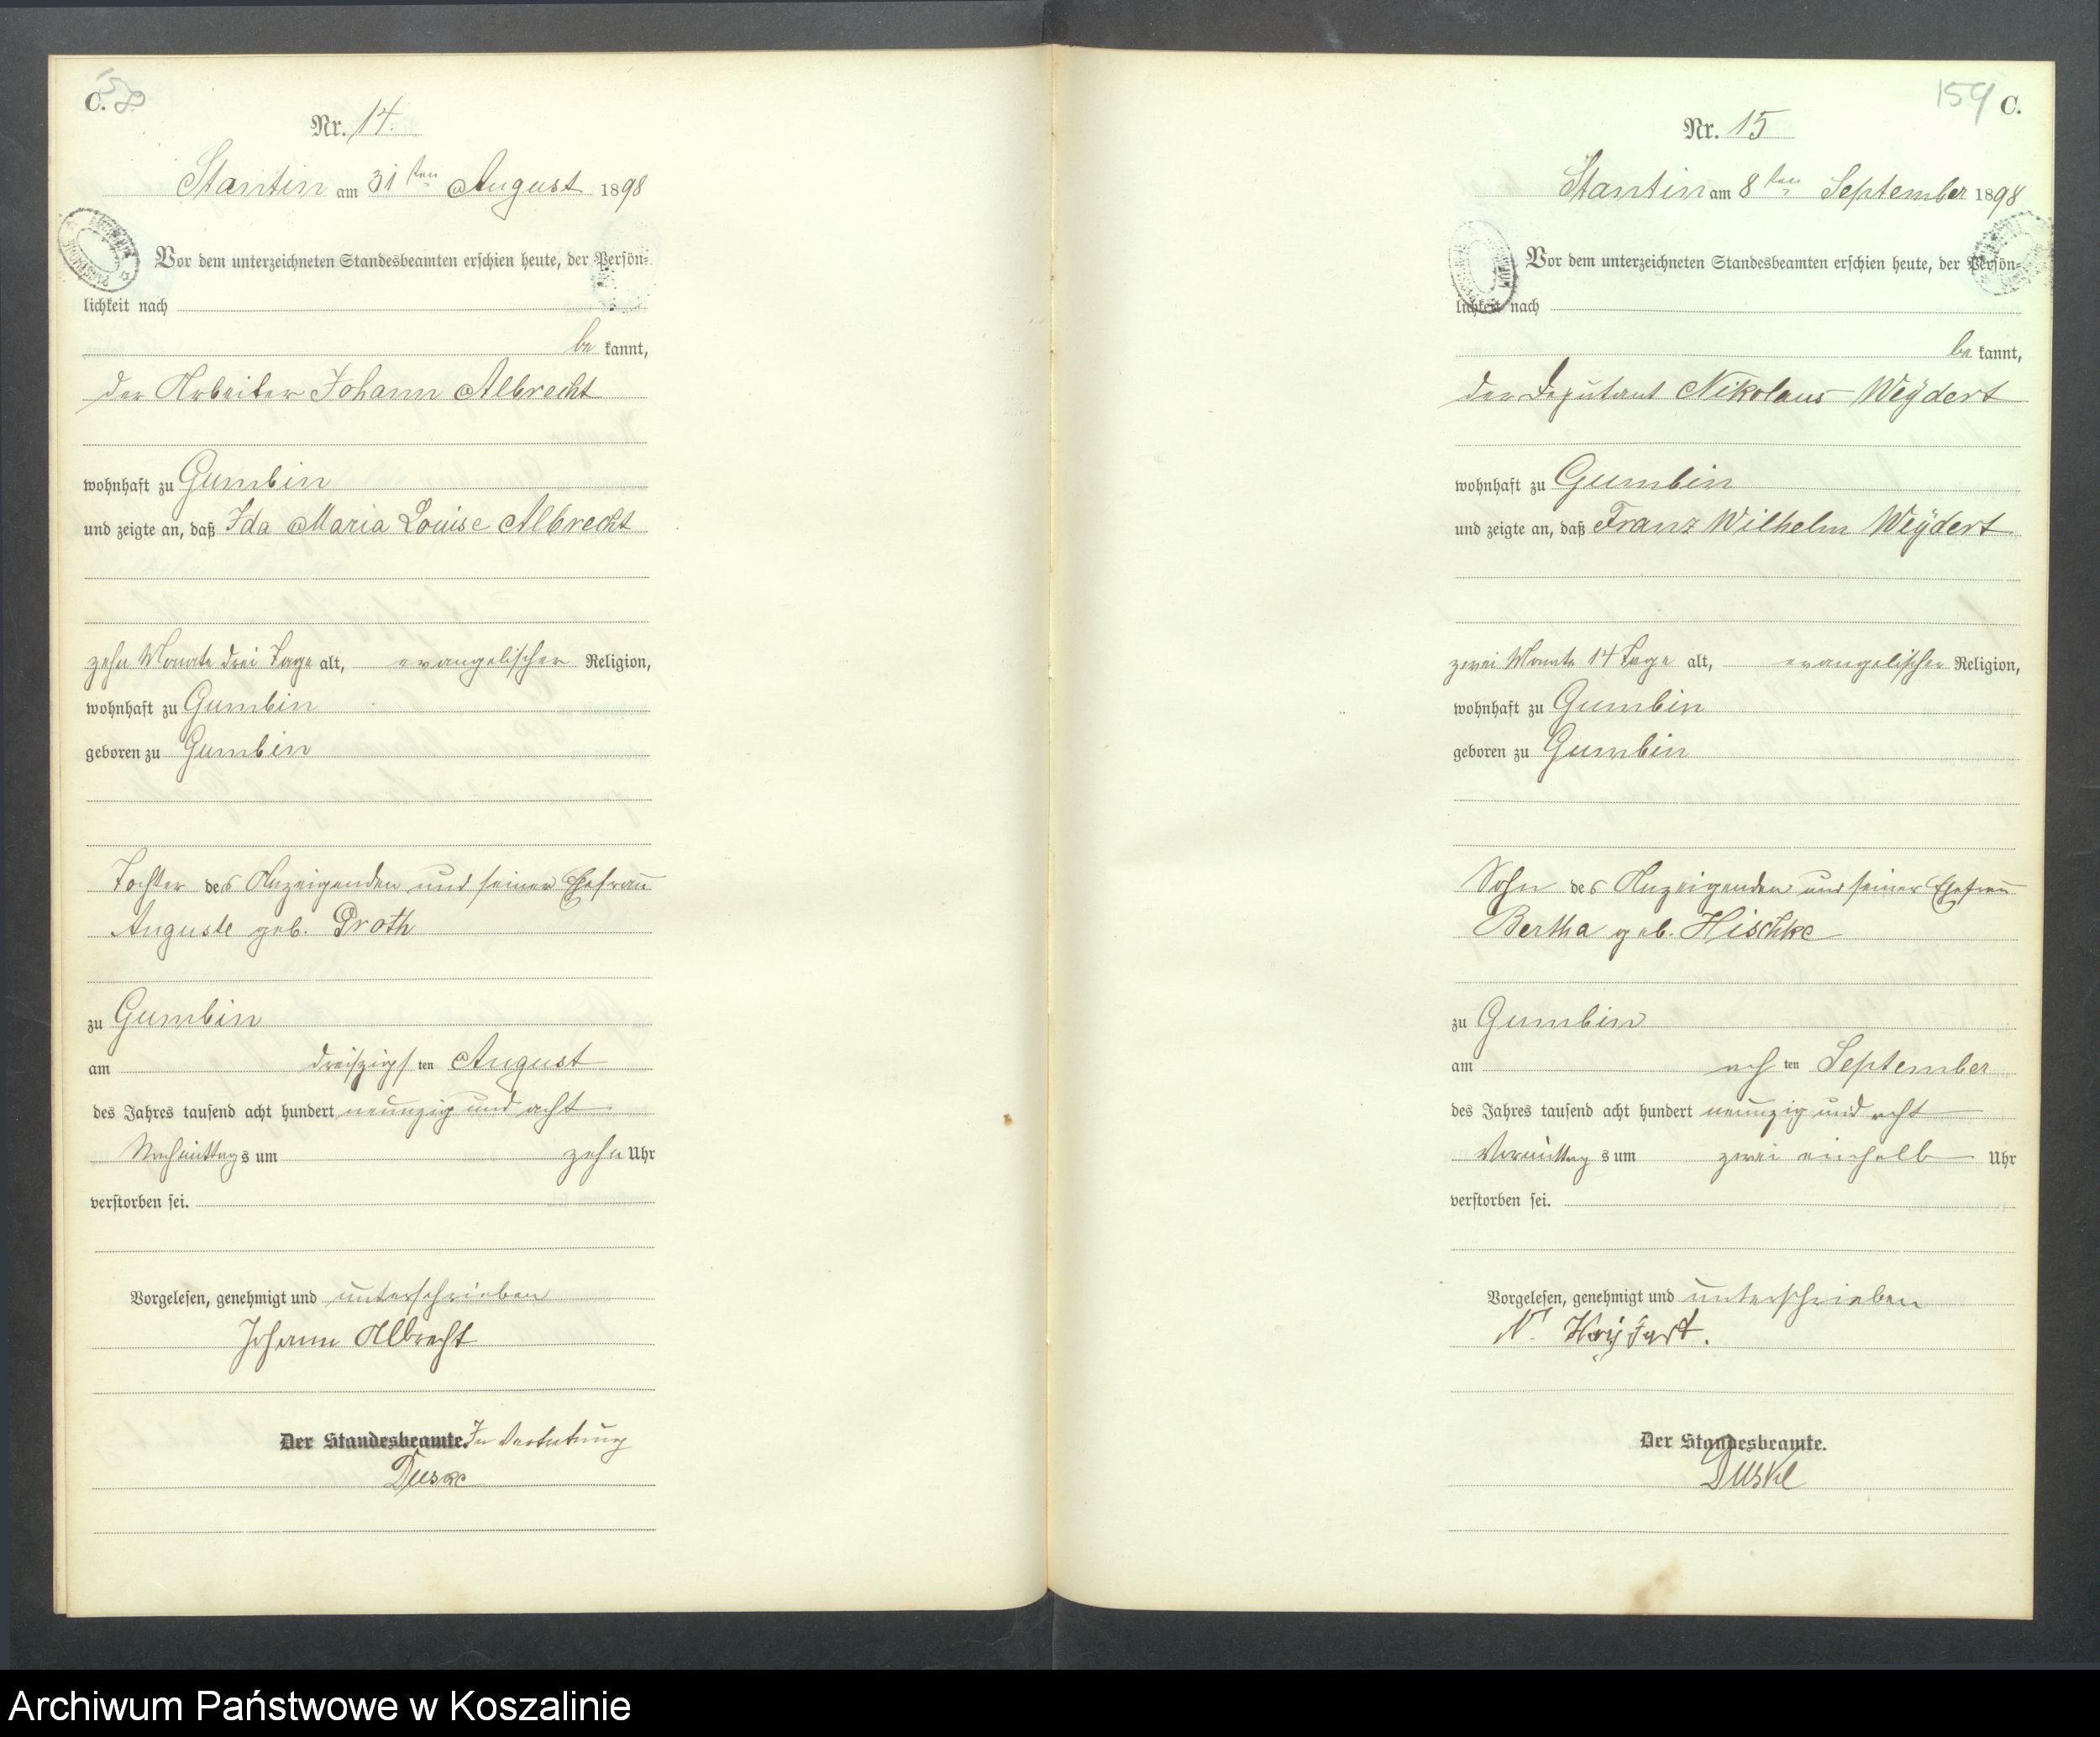 C. 58
Nr. 14.
Stantin am 31 ten August 1898
Vor dem unterzeichneten Standesbeamten erschien heute, der Persön-
lichkeit nach
be kannt,
der Arbeiter Johann Albrecht
wohnhaft zu Gumbin
und zeigte an, daß Ida Maria Louise Albrecht
zehn Monate drei Tage alt, evangelischer Religion,
wohnhaft zu Gumbin
geboren zu Gumbin
Tochter des Anzeigenden und seiner Ehefrau
Auguste geb. Proth
zu Gumbin
am dreiszigs ten August
des Jahres tausend acht hundert neunzig und acht
Nachmittags um zehn Uhr
verstorben sei.
Vorgelesen, genehmigt und unterschrieben
Johann Albrecht
Der Standesbeamte. In Vertretung
Duske
159 C.
Nr. 15
Stantin am 8 ten September 1898
Vor dem unterzeichneten Standesbeamten erschien heute, der Persön-
lichkeit nach
be kannt,
der Deputant Nikolaus Weÿdert
wohnhaft zu Gumbin
und zeigte an, daß Franz Wilhelm Weÿdert
zwei Monate 14 Tage alt, evangelischer Religion,
wohnhaft zu Gumbin
geboren zu Gumbin
Sohn des Anzeigenden und seiner Ehefrau
Bertha geb. Hischke
zu Gumbin
am ach ten September
des Jahres tausend acht hundert neunzig und acht
Vormittag s um zwei einhalb Uhr
verstorben sei.
Vorgelesen, genehmigt und unterschrieben
N. Weÿdert.
Der Standesbeamte.
Duske
Archiwum Państwowe w Koszalinie